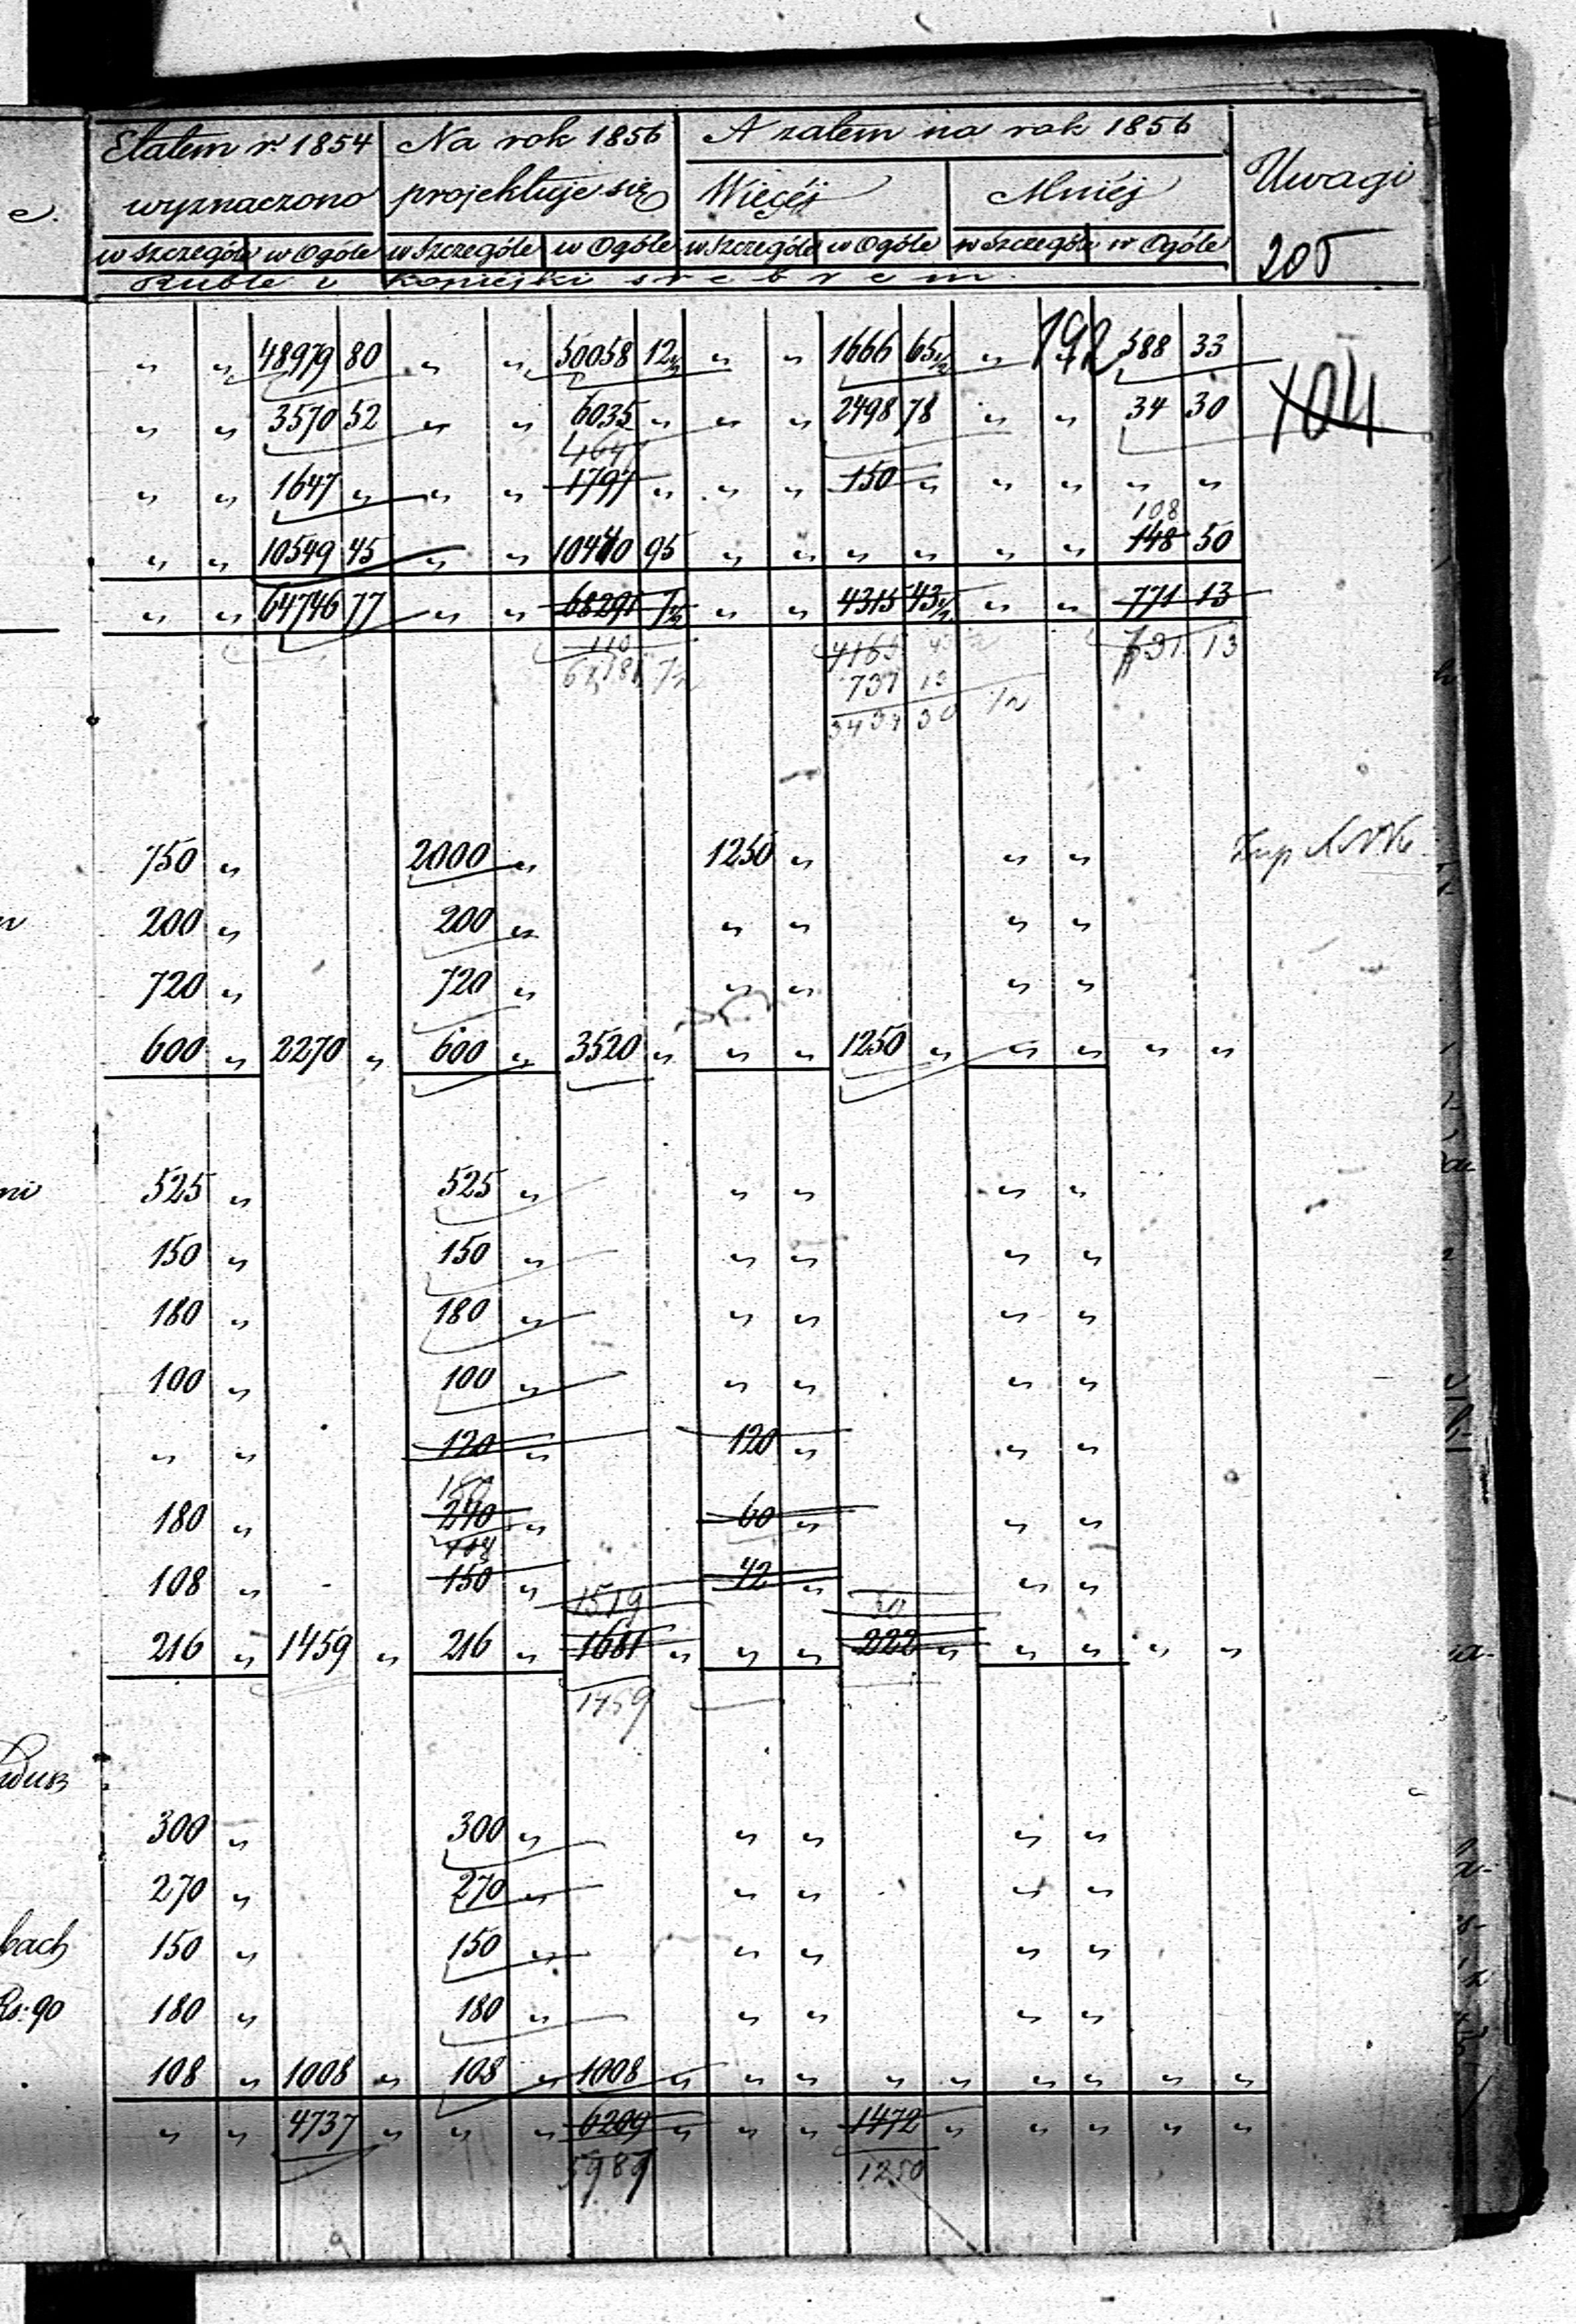 Etatem r. 1854 Na rok 1856 A zatem na rok 1856 Uwagi
wyznaczono projektuje się Więcéj Mniéj
e.
w szczególe w Ogóle w szczególe w Ogóle w szczególe w Ogóle w szczególe w Ogóle 205
Ruble i kopiejki srebrem.
192
„ „ 48979 80 „ „ 50058 12½ „ „ 1666 65½ „ „ 588 33
104
„ „ 3570 52 „ „ 6035 „ „ „ 2498 78 „ „ 34 30
1647
„ „ 1647 „ „ „ 1797 „ „ „ 150 „ „ „ „ „
108
„ „ 10549 45 „ „ 10440 95 „ „ „ „ „ „ 148 50
„ „ 64746 77 „ „ 68291 7½ „ „ 4315 43½ „ „ 771 13
110 4165 43½ 731 13
68181 7½ 731 13
3434 30 ½
750 „ 2000 „ 1250 „ „ „
200 „ 200 „ „ „ „ „
720 „ 720 „ „ „ „ „
600 „ 2270 „ 600 „ 3520 „ „ „ 1250 „ „ „ „ „
ni 525 „ 525 „ „ „ „ „
150 „ 150 „ „ „ „ „
180 „ 180 „ „ „ „ „
100 „ 100 „ „ „ „ „
„ „ 120 „ 120 „ „ „
180
180 „ 240 „ 60 „ „ „
108
108 „ 150 „ 42 „ „ „
1519 30
216 „ 1459 „ 216 „ 1681 „ „ „ 222 „ „ „ „ „
1459
300 „ 300 „ „ „ „ „
270 „ 270 „ „ „ „ „
bach 150 „ 150 „ „ „ „ „
Rs. 90 180 „ 180 „ „ „ „ „
108 „ 1008 „ 108 „ 1008 „ „ „ „ „ „ „ „ „
„ „ 4737 „ „ „ 6209 „ „ „ 1472 „ „ „ „ „
5987 1250